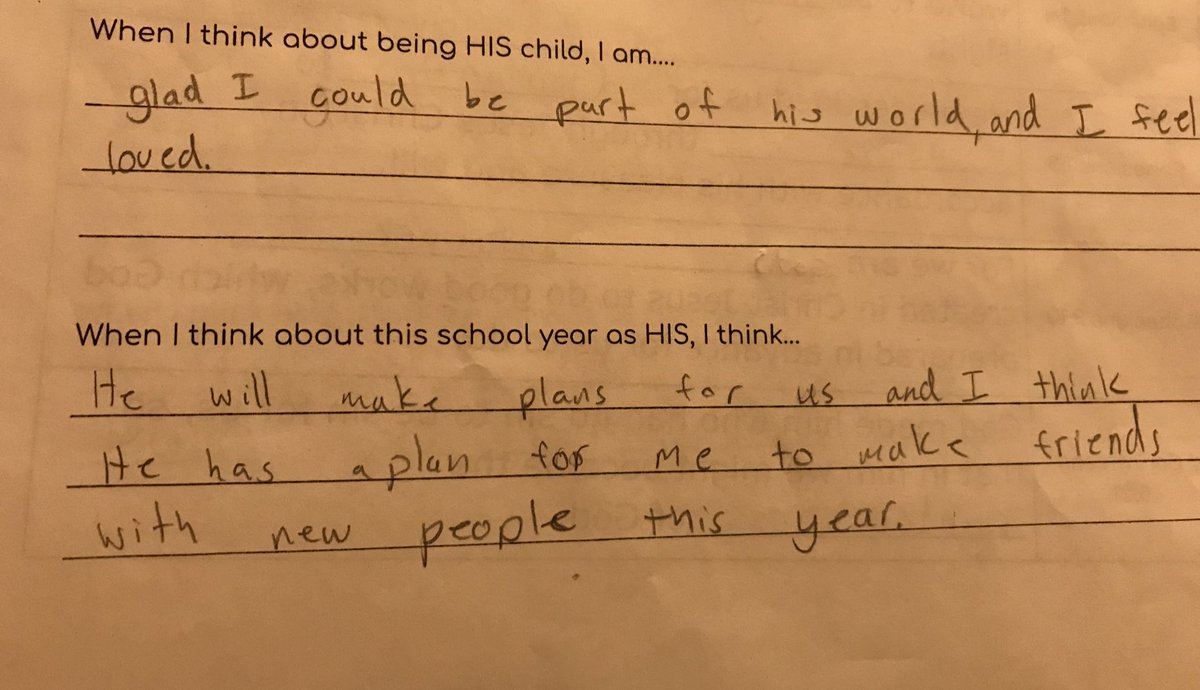 When I think about being HIS child, I am....
glad I could be part of his world, and I feel
loved.
When I think about this school year as HIS, I think...
He will make plans for us and I think
He has a plan for me to make friends
with new people this year.